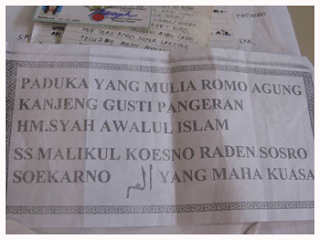 PADUKA YANG MULIA ROMO AGUNG
KANJENG GUSTI PANGERAN
HM.SYAH AWALUL ISLAM
SS MALIKUL KOESNO RADEN SOSRO
SOEKARNO الم YANG MAHA KUASA